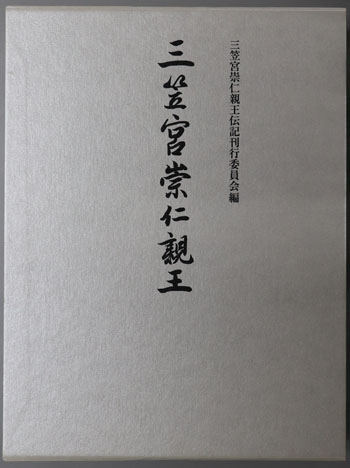 三笠宮崇仁親王伝記刊行委員会編
三笠宮崇仁親王